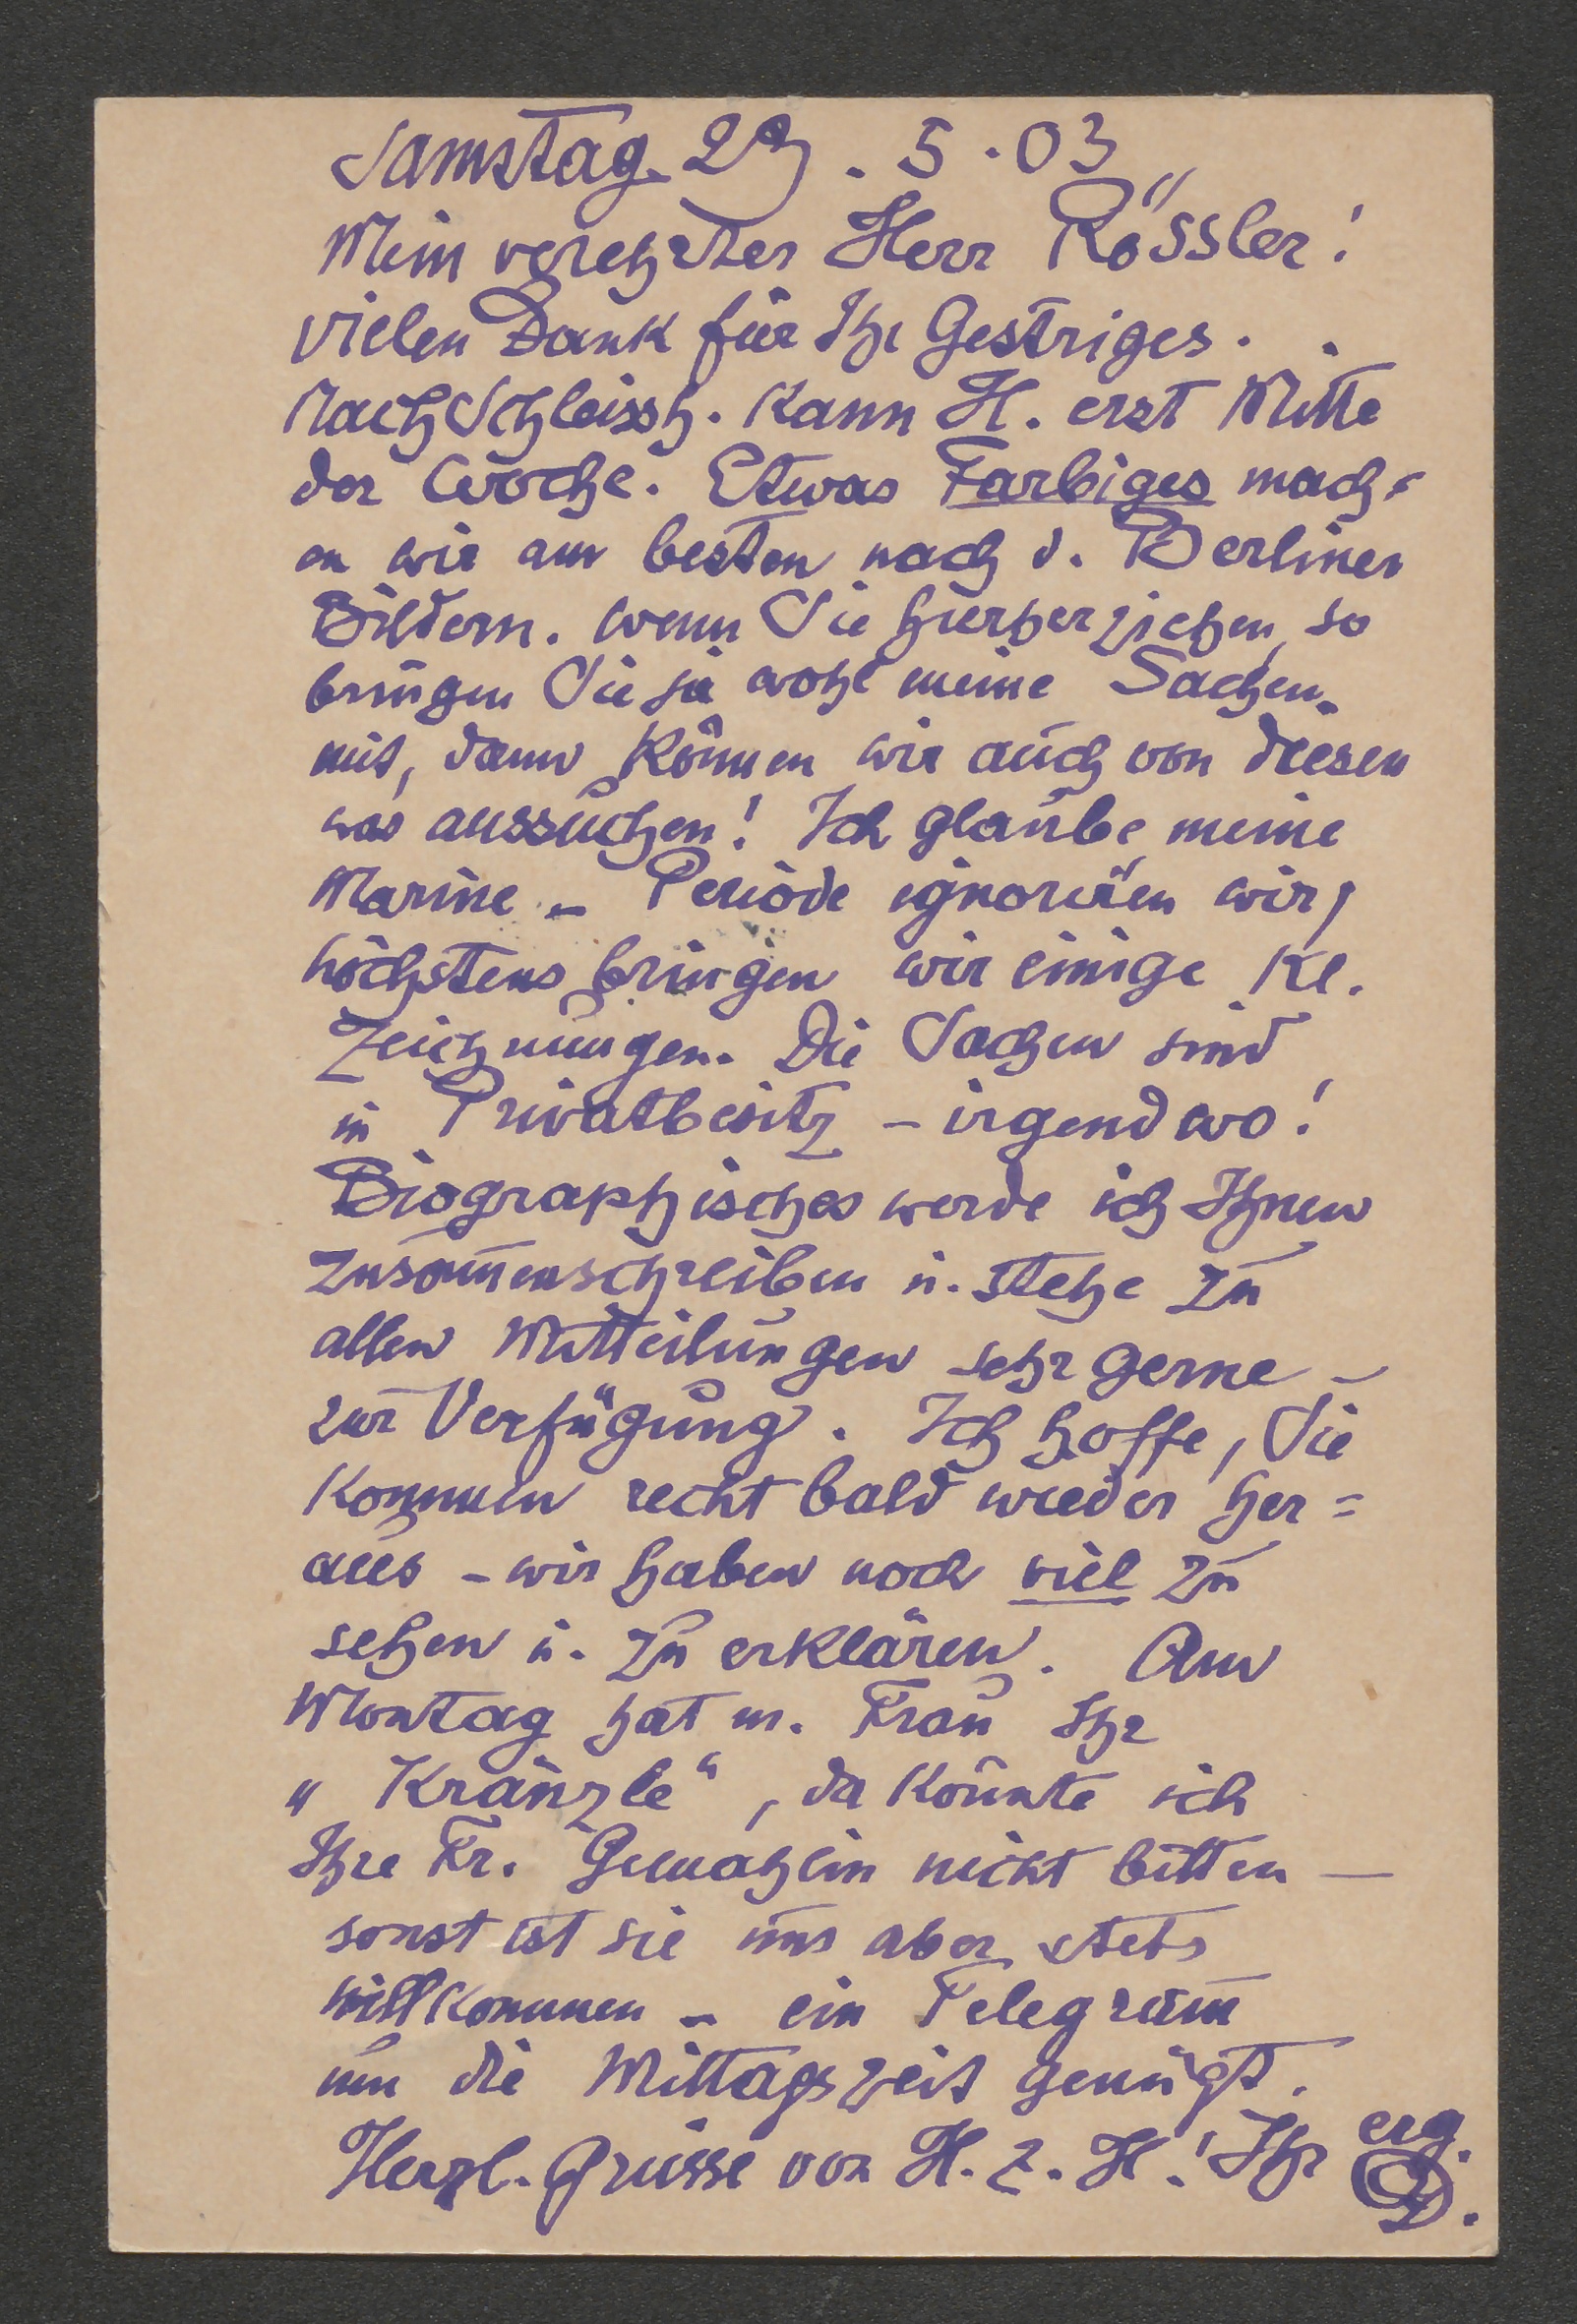 Samstag 23. 5. 03
Mein verehrter Herr Rössler!
vielen Dank für Ihr Gestriges.
Nach Schleissh. kann H. erst Mitte
der Woche. Etwas Farbiges mach=
en wir am besten nach d. Berliner
Bildern. Wenn Sie hierher ziehen, so
bringen Sie ja wohl meine Sachen
mit, dann können wir auch von diesen
was aussuchen! Ich glaube meine
Marine - Periode ignorieren wir,
höchstens bringen wir einige kl.
Zeichnungen. Die Sachen sind
in Privatbesitz - irgendwo!
Biographisches werde ich Ihnen
zusam̄enschreiben u. stehe zu
allen Mitteilungen sehr gerne -
zur Verfügung. Ich hoffe, Sie
kommen recht bald wieder her=
aus - wir haben noch viel zu
sehen u. zu erklären. Am
Montag hat m. Frau Ihr
„Kränzle“, da könnte ich
Ihre Fr. Gemahlin nicht bitten —
sonst ist sie uns aber stets
willkommen - ein Telegram̄
um die Mittagszeit genügt.
Herzl. Grüsse von H. z. H.! Ihr erg.
D.